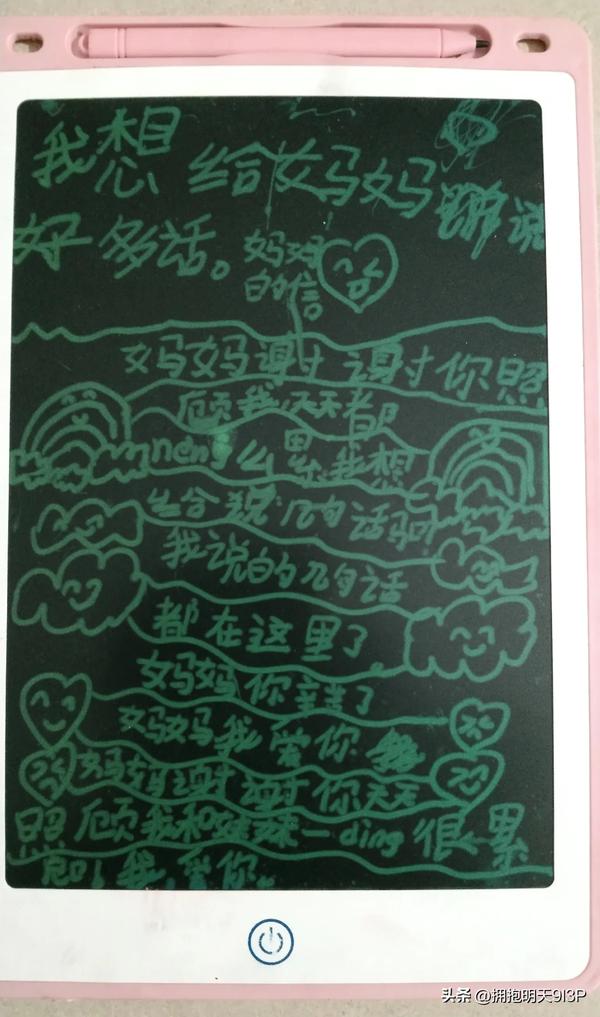 我想给妈妈说
好多话。
妈妈
的信
妈妈谢谢你照
顾我天天都
neng么累我想
给 几句话
我说的几句话
都在这里了
妈妈你辛苦了
妈妈我爱你
妈妈谢谢你天天
照顾我和妹妹一ding很累
我爱你。
头条 @拥抱明天9I3P